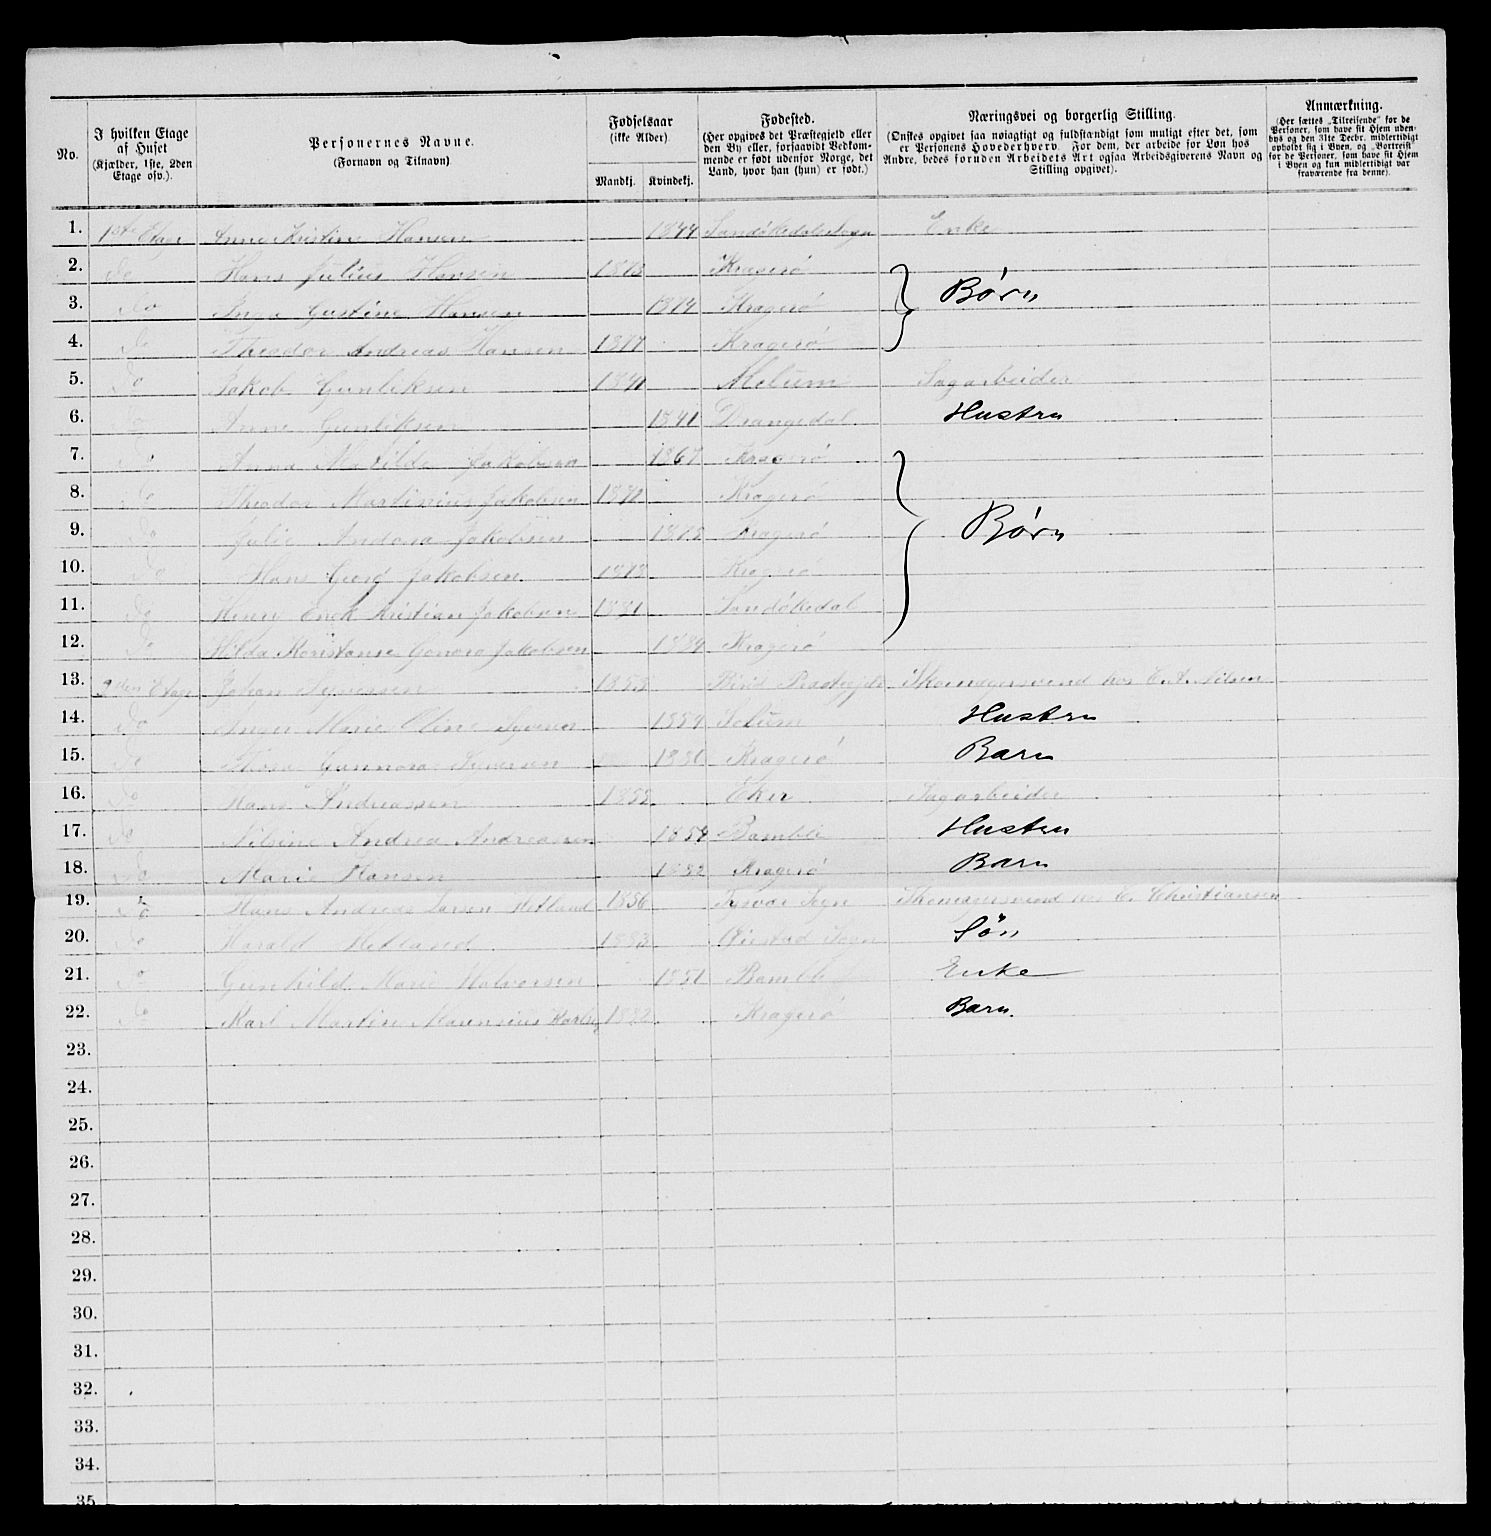 No.
I hvilken Etage af Huset (Kjælder, 1ste, 2den Etage osv.).
Personernes Navne. (Fornavn og Tilnavn)
Fødselsaar (ikke Alder)
Mandkj. Kvindekj.
Fødested. (Her opgives det Præstegjeld eller den By eller, forsaavidt Vedkommende er født udenfor Norge, det Land, hvor han (hun) er født.)
Næringsvei og borgerlig Stilling. (Ønskes opgivet saa nøiagtigt og fuldstændigt som muligt efter det, som er Personens Hovederhverv. For dem, der arbeide for Løn hos Andre, bedes foruden Arbeidets Art ogsaa Arbeidsgiverens Navn og Stilling opgivet).
Anmærkning. (Her sættes „Tilreisende“ for de Personer, som have sit Hjem udenbys og den 31te Decbr. midlertidigt opholdt sig i Byen, og „Bortreist“ for de Personer, som have sit Hjem i Byen og kun midlertidigt var fraværende fra denne).
1. 1ste Etage Anne Kristine Hansen 1844 Sandøkedal Sogn Enke
2. Do Hans Julius Hansen 1873 Kragerø
3. Do Inga Gustine Hansen 1874 Kragerø Børn
4. Do Theodor Andreas Hansen 1877 Kragerø
5. Do Jakob Gunleksen Sagarbeider
6. Do Anne Gunleksen 1841 Drangedal Hustru
7. Do Anna Matilde Jakobsen 1867 Kragerø
8. Do Theodor Martinius Jakobsen Kragerø
9. Do Julie Andora Jakobsen Kragerø Børn
10. Do Hans Georg Jakobsen 1878 Kragerø
11. Do Henry Enok Kristian Jakobsen 1881 Sandøkedal
12. Do Hilda Konstanse Jakobsen 1884 Kragerø
13. 2den Etage Johan Syversen 1853 Skomagersvend hos C. A. Nilsen
14. Do Inger Marie Oline 1854 Solum Hustru
15. Do Gunnora Syversen 1880 Kragerø Barn
16. Do Hans Andreassen Eker Sagarbeider
17. Do Nilsine Andrea Andreassen 1854 Bamble Hustru
18. Do Marie Hansen 1882 Kragerø Barn
19. Do Hans Andreas Larsen Hetland 1856 Tysvær Sogn Skomagersvend hos C. Christiansen
20. Do Harald Hetland 1883 Øiestad Sogn Søn
21. Do Gunhild Marie Halvorsen 1851 Bamble Enke
22. Do Karl Martin Karlsen 1882 Kragerø Barn.
23.
24.
25.
26.
27.
28.
29.
30.
31.
32.
33.
34.
35